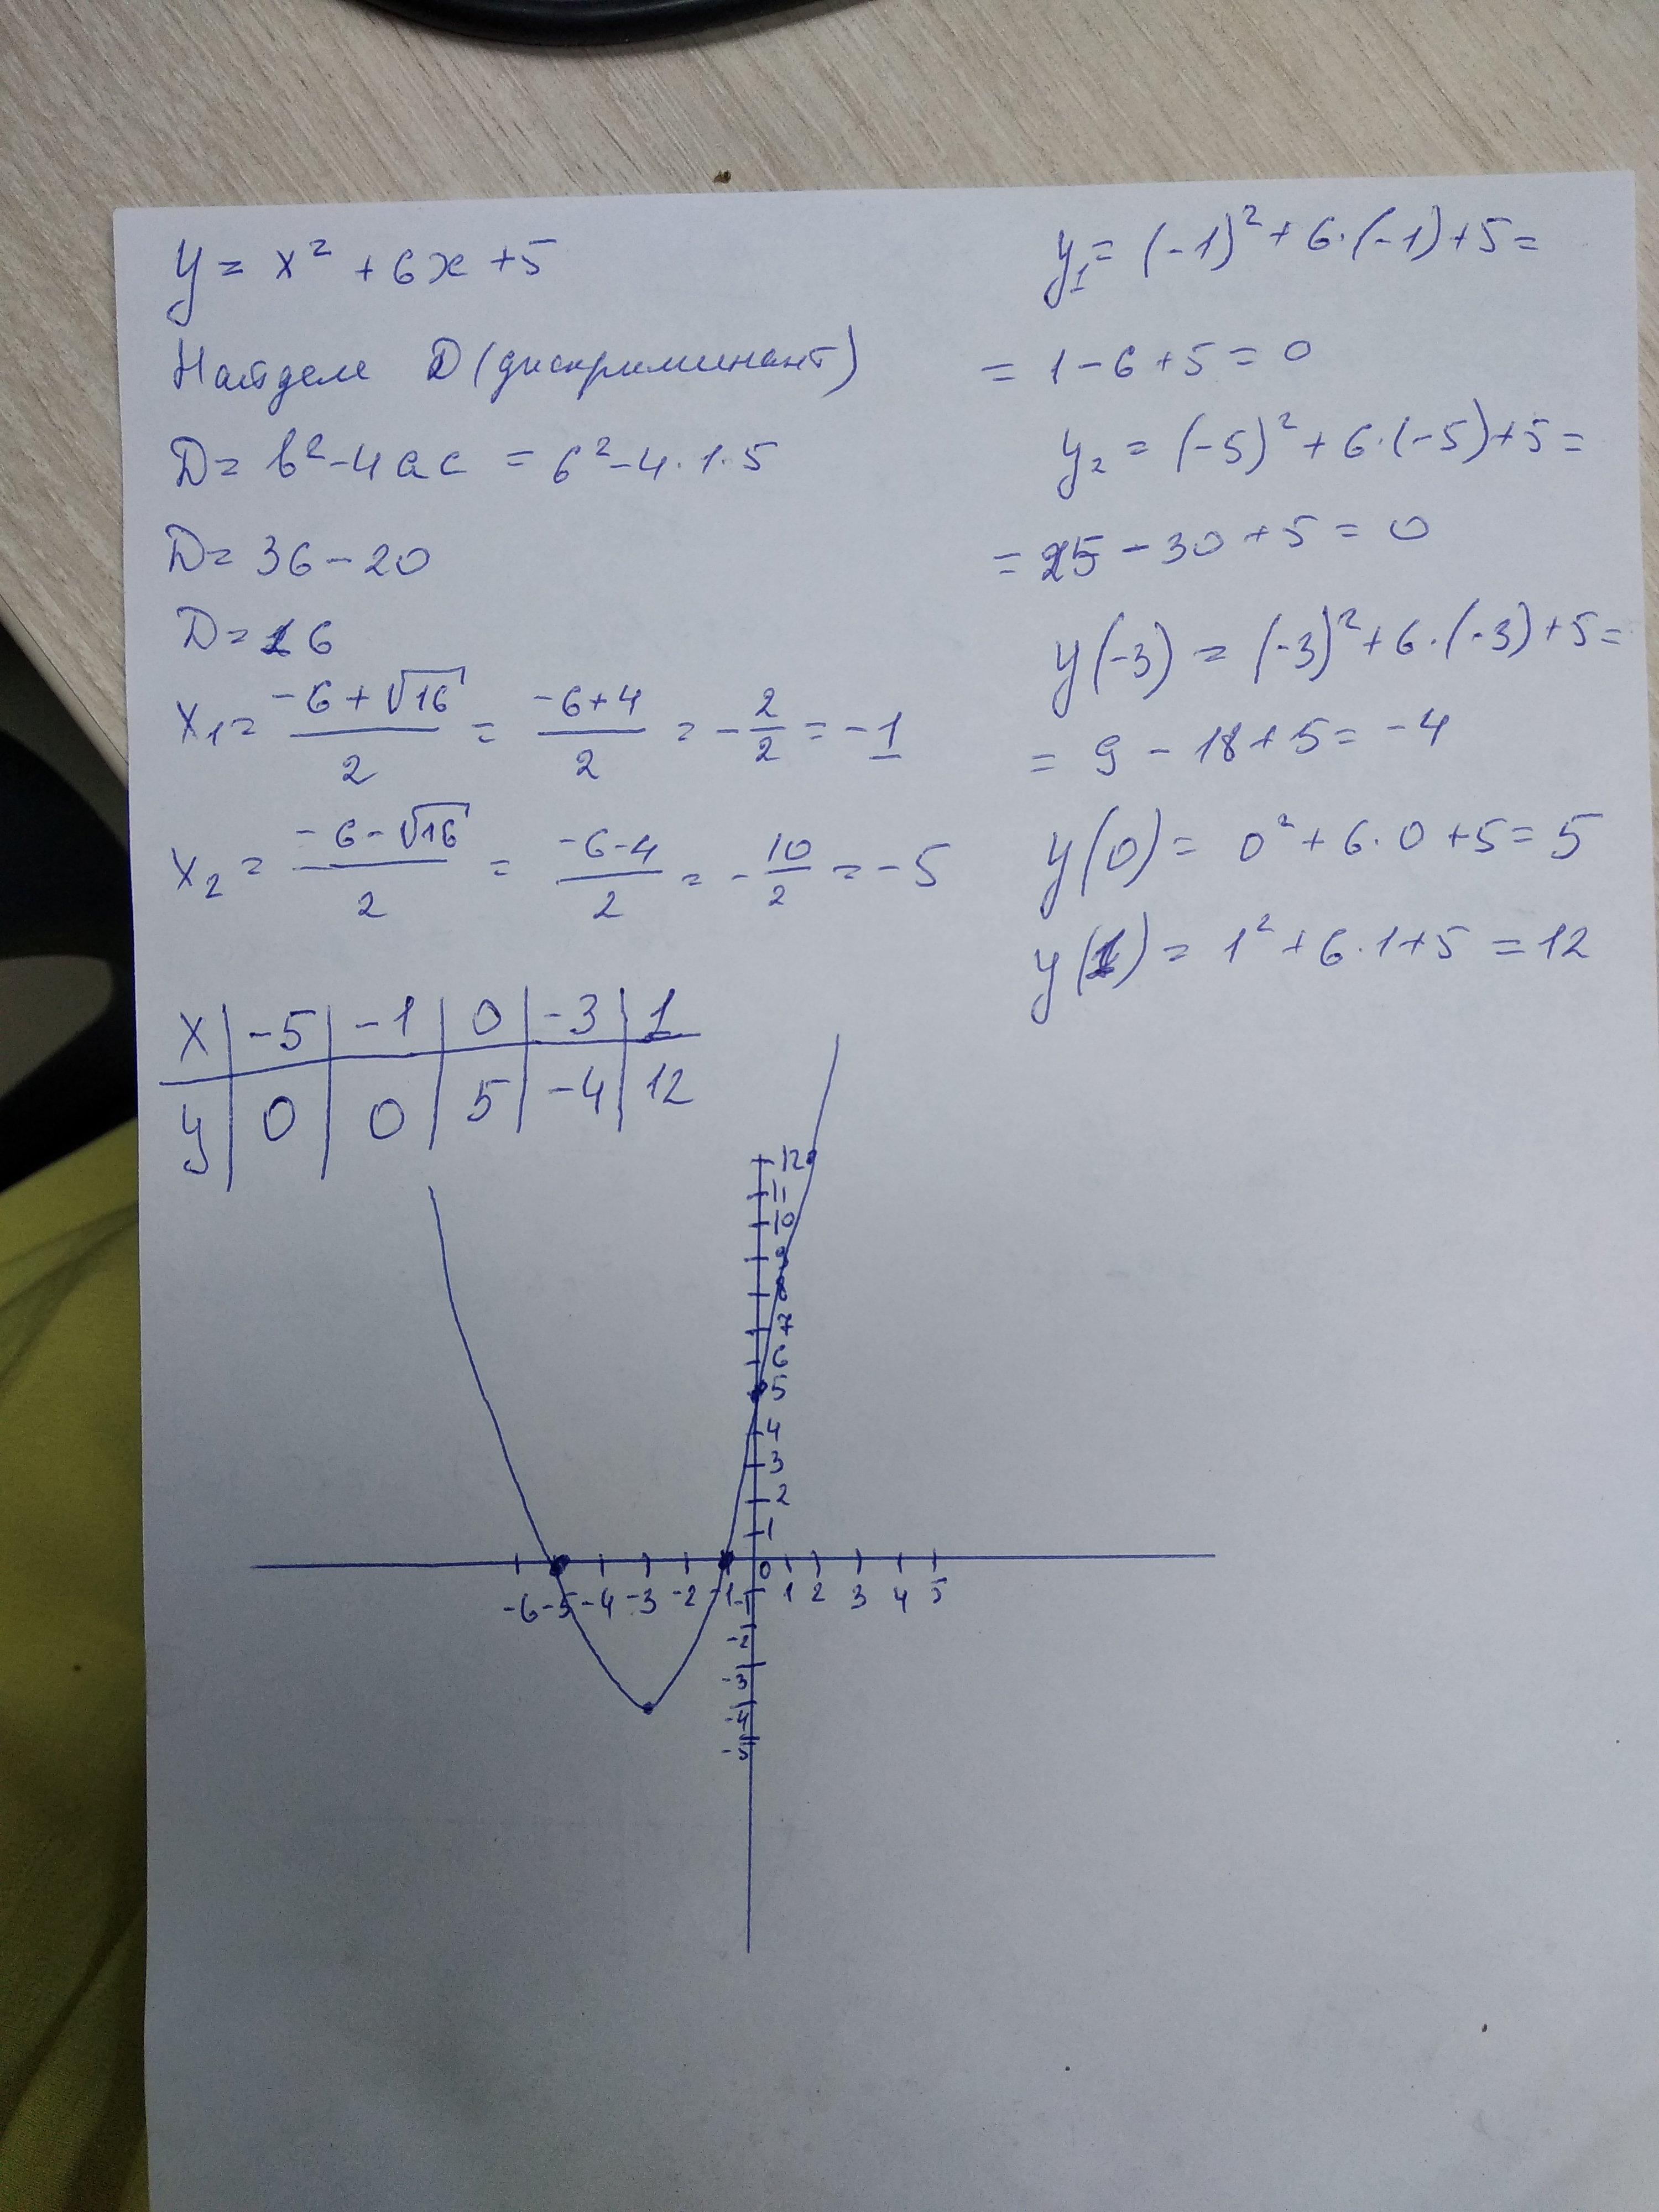 y = x² + 6x + 5
Найдем D (дискриминант)
D = b² - 4ac = 6² - 4·1·5
D = 36 - 20
D = 16
x₁ = (-6 + √16)/2 = (-6+4)/2 = -2/2 = -1
x₂ = (-6 - √16)/2 = (-6-4)/2 = -10/2 = -5
x | -5 | -1 | 0 | -3 | 1
y | 0 | 0 | 5 | -4 | 12
y₁ = (-1)² + 6·(-1) + 5 =
= 1 - 6 + 5 = 0
y₂ = (-5)² + 6·(-5) + 5 =
= 25 - 30 + 5 = 0
y(-3) = (-3)² + 6·(-3) + 5 =
= 9 - 18 + 5 = -4
y(0) = 0² + 6·0 + 5 = 5
y(1) = 1² + 6·1 + 5 = 12
12
11
10
9
8
7
6
5
4
3
2
1
-6 -5 -4 -3 -2 -1 0 1 2 3 4 5
-1
-2
-3
-4
-5